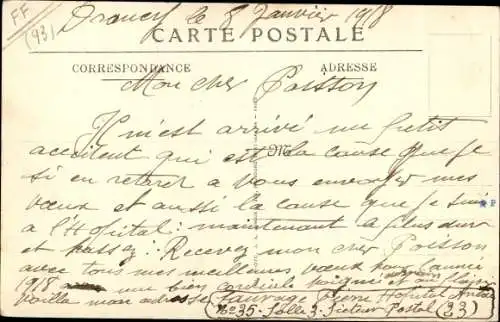 FF
(93)
Drancy le 8 Janvier 1918
CARTE POSTALE
CORRESPONDANCE
ADRESSE
Mon cher Poisson
Il m'est arrivé un petit
accident qui est la cause que je
si en retard a vous envoyer mes
vœux et aussi la cause que je suis
a l'Hopital: maintenant a plus dur
et passez: Recevez mon cher Poisson
avec tous mes meilleures vœux pour l'année
1918 une bien cordiale poignée
voilla mon adresse Pierre Hopital
16235. Salle 3. Secteur Postal (23)